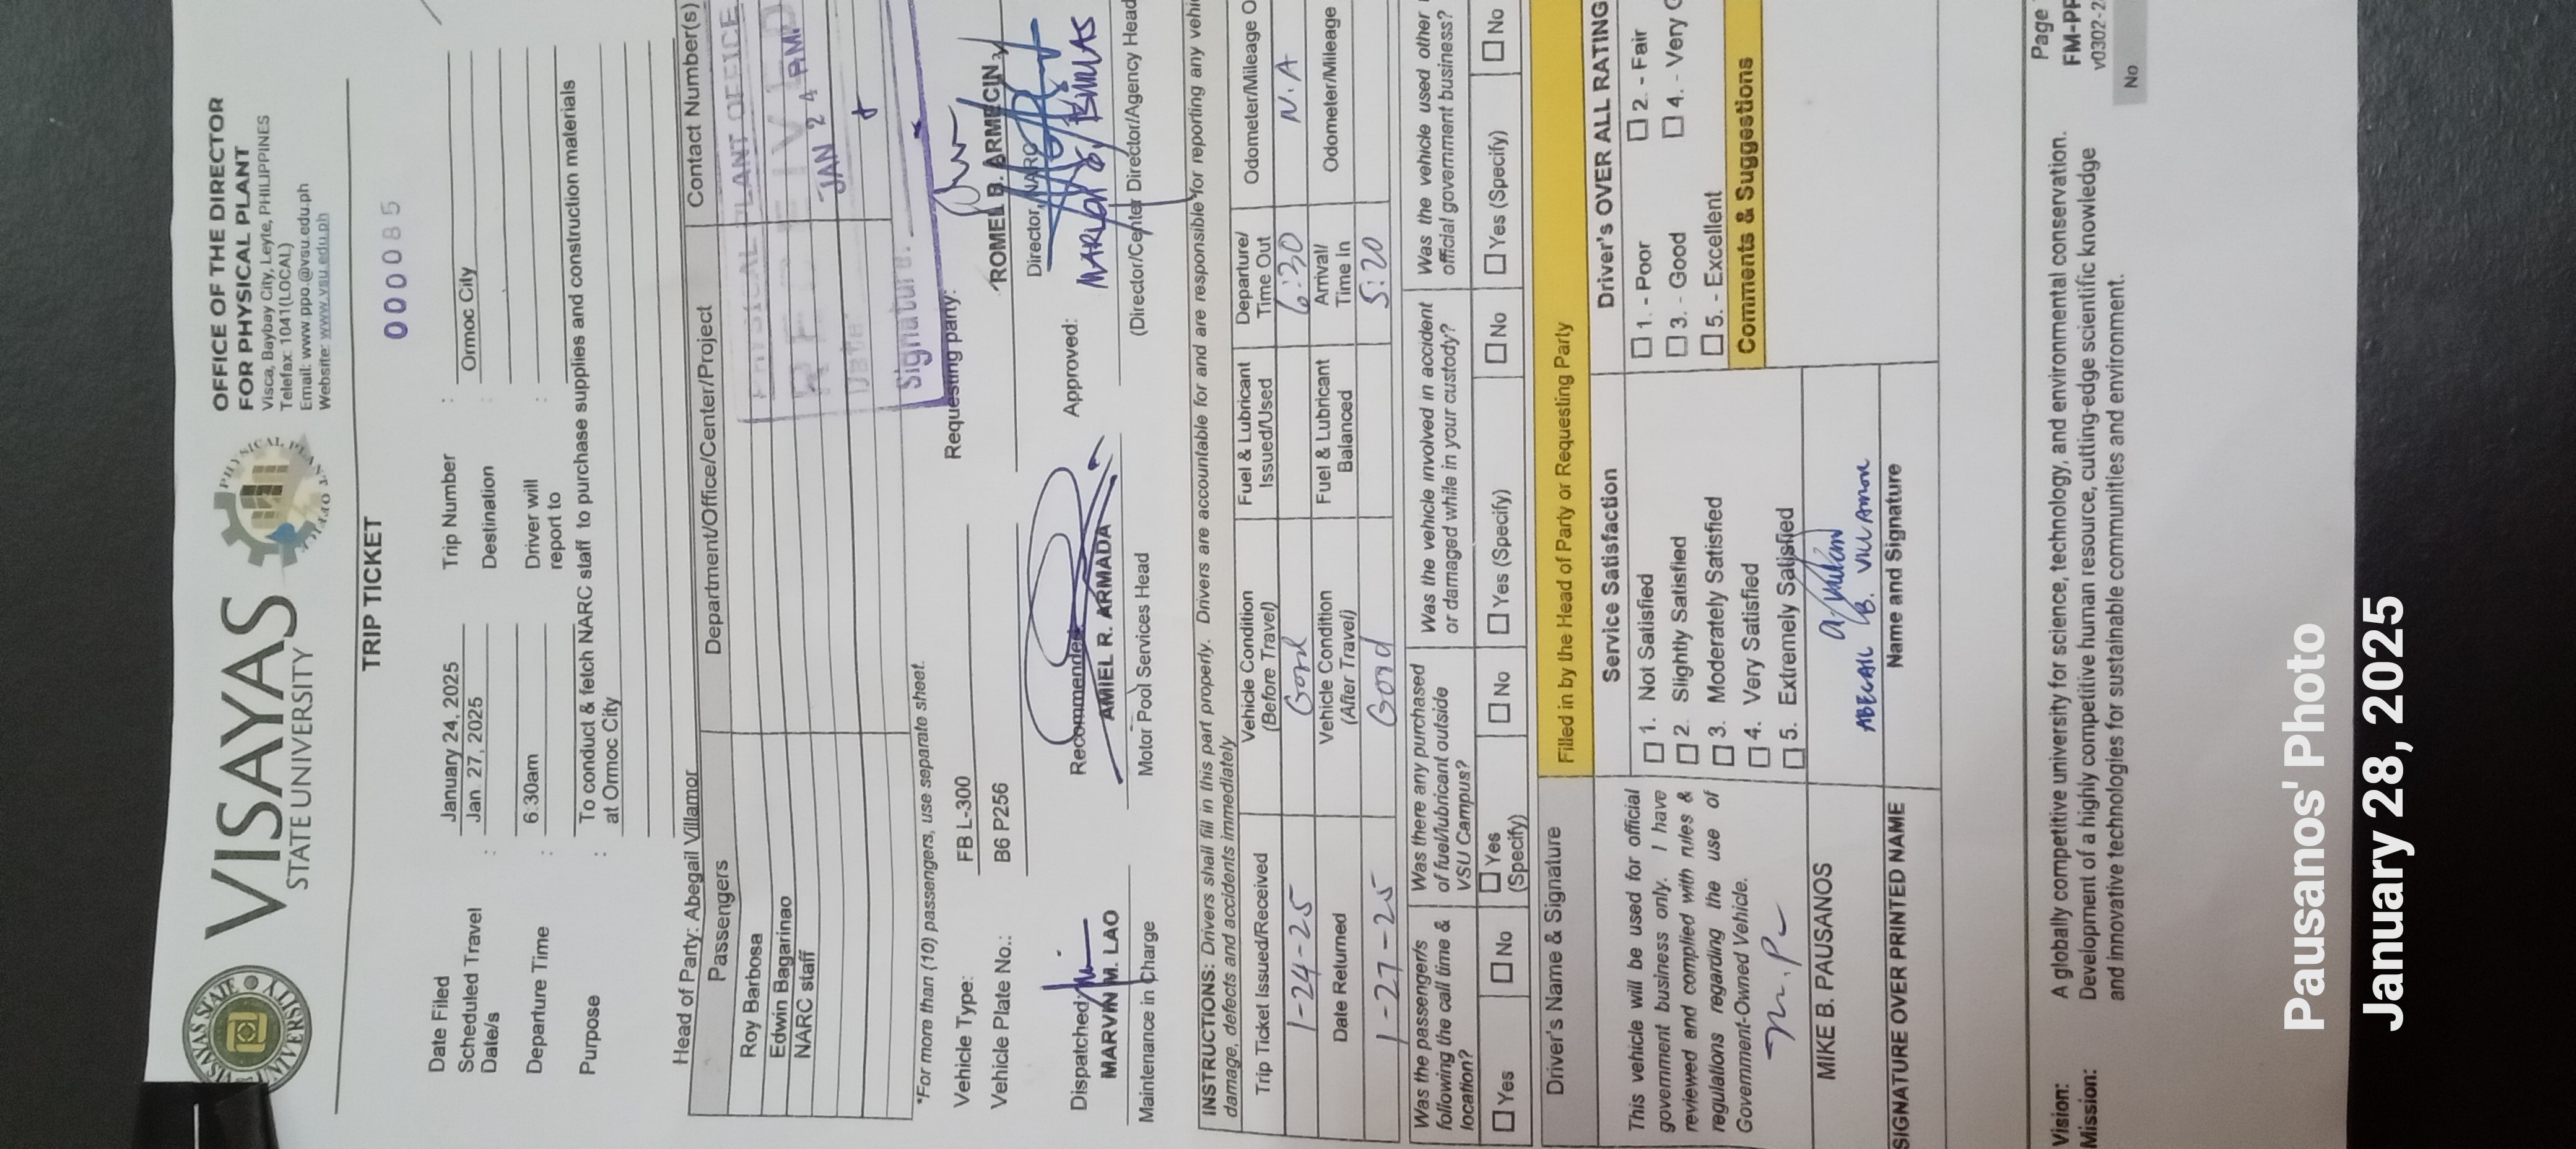 VISAYAS
STATE UNIVERSITY
PHYSICAL PLANT OFFICE
OFFICE OF THE DIRECTOR
FOR PHYSICAL PLANT
Visca, Baybay City, Leyte, PHILIPPINES
Telefax: 1041(LOCAL)
Email: www.ppo.@vsu.edu.ph
Website: www.vsu.edu.ph
TRIP TICKET
000085
Date Filed January 24, 2025 Trip Number :
Scheduled Travel Date/s : Jan. 27, 2025 Destination : Ormoc City
Departure Time : 6:30am Driver will report to :
Purpose : To conduct & fetch NARC staff to purchase supplies and construction materials
at Ormoc City
Head of Party: Abegail Villamor
Passengers Department/Office/Center/Project Contact Number(s)
Roy Barbosa
Edwin Bagarinao
NARC staff
PHYSICAL PLANT OFFICE
RECEIVED
Date JAN 24
Signature:
*For more than (10) passengers, use separate sheet.
Vehicle Type: FB L-300
Vehicle Plate No.: B6 P256
Requesting party:
ROMEL B. ARMECIN
Director, NARC
Dispatched:
MARVIN M. LAO
Maintenance in Charge
Recommended:
AMIEL R. ARMADA
Motor Pool Services Head
Approved:
(Director/Center Director/Agency Head
INSTRUCTIONS: Drivers shall fill in this part properly. Drivers are accountable for and are responsible for reporting any vehi
damage, defects and accidents immediately
Trip Ticket Issued/Received Vehicle Condition (Before Travel) Fuel & Lubricant Issued/Used Departure/ Time Out Odometer/Mileage O
1-24-25 Good 6:30 N.A
Date Returned Vehicle Condition (After Travel) Fuel & Lubricant Balanced Arrival/ Time in Odometer/Mileage
1-27-25 Good 5:20
Was the passenger/s following the call time & location?
Was there any purchased of fuel/lubricant outside VSU Campus?
Was the vehicle involved in accident or damaged while in your custody?
Was the vehicle used other official government business?
Yes No Yes (Specify) No Yes (Specify) No Yes (Specify) No
Driver's Name & Signature
This vehicle will be used for official
government business only. I have
reviewed and complied with rules &
regulations regarding the use of
Government-Owned Vehicle.
MIKE B. PAUSANOS
SIGNATURE OVER PRINTED NAME
Filled in by the Head of Party or Requesting Party
Service Satisfaction
1. Not Satisfied
2. Slightly Satisfied
3. Moderately Satisfied
4. Very Satisfied
5. Extremely Satisfied
ABEGAIL B. VILLAMOR
Name and Signature
Driver's OVER ALL RATING
1. - Poor 2. - Fair
3. - Good 4. - Very G
5. - Excellent
Comments & Suggestions
Vision: A globally competitive university for science, technology, and environmental conservation.
Mission: Development of a highly competitive human resource, cutting-edge scientific knowledge
and innovative technologies for sustainable communities and environment.
Page
FM-PP
v0302-2
No
Pausanos' Photo
January 28, 2025